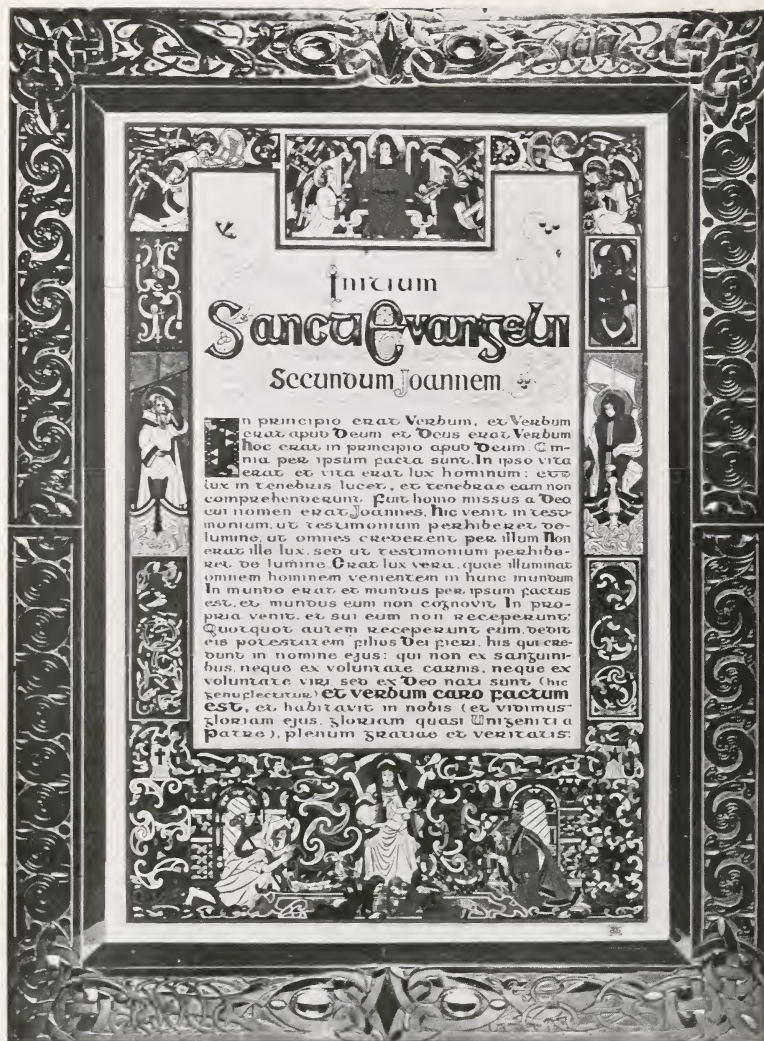 Initium
Sancti Evangelii
Secundum Joannem
In principio erat Verbum, et Verbum
erat apud Deum et Deus erat Verbum
Hoc erat in principio apud Deum. Om-
nia per ipsum facta sunt. In ipso vita
erat et vita erat lux hominum; et
lux in tenebris lucet, et tenebrae eam non
comprehenderunt. Fuit homo missus a Deo
cui nomen erat Joannes. Hic venit in testi-
monium, ut testimonium perhiberet de
lumine, ut omnes crederent per illum Non
erat ille lux, sed ut testimonium perhibe-
ret de lumine. Erat lux vera, quae illuminat
omnem hominem venientem in hunc mundum
In mundo erat et mundus per ipsum factus
est, et mundus eum non cognovit In pro-
pria venit, et sui eum non receperunt.
Quotquot autem receperunt eum, dedit
eis potestatem filios Dei fieri, his qui cre-
dunt in nomine ejus: qui non ex sanguini-
bus, neque ex voluntate carnis, neque ex
voluntate viri, sed ex Deo nati sunt (hic
genuflectitur) et verbum caro factum
est, et habitavit in nobis (et vidimus
gloriam ejus, gloriam quasi Unigeniti a
Patre), plenum gratiae et veritatis.